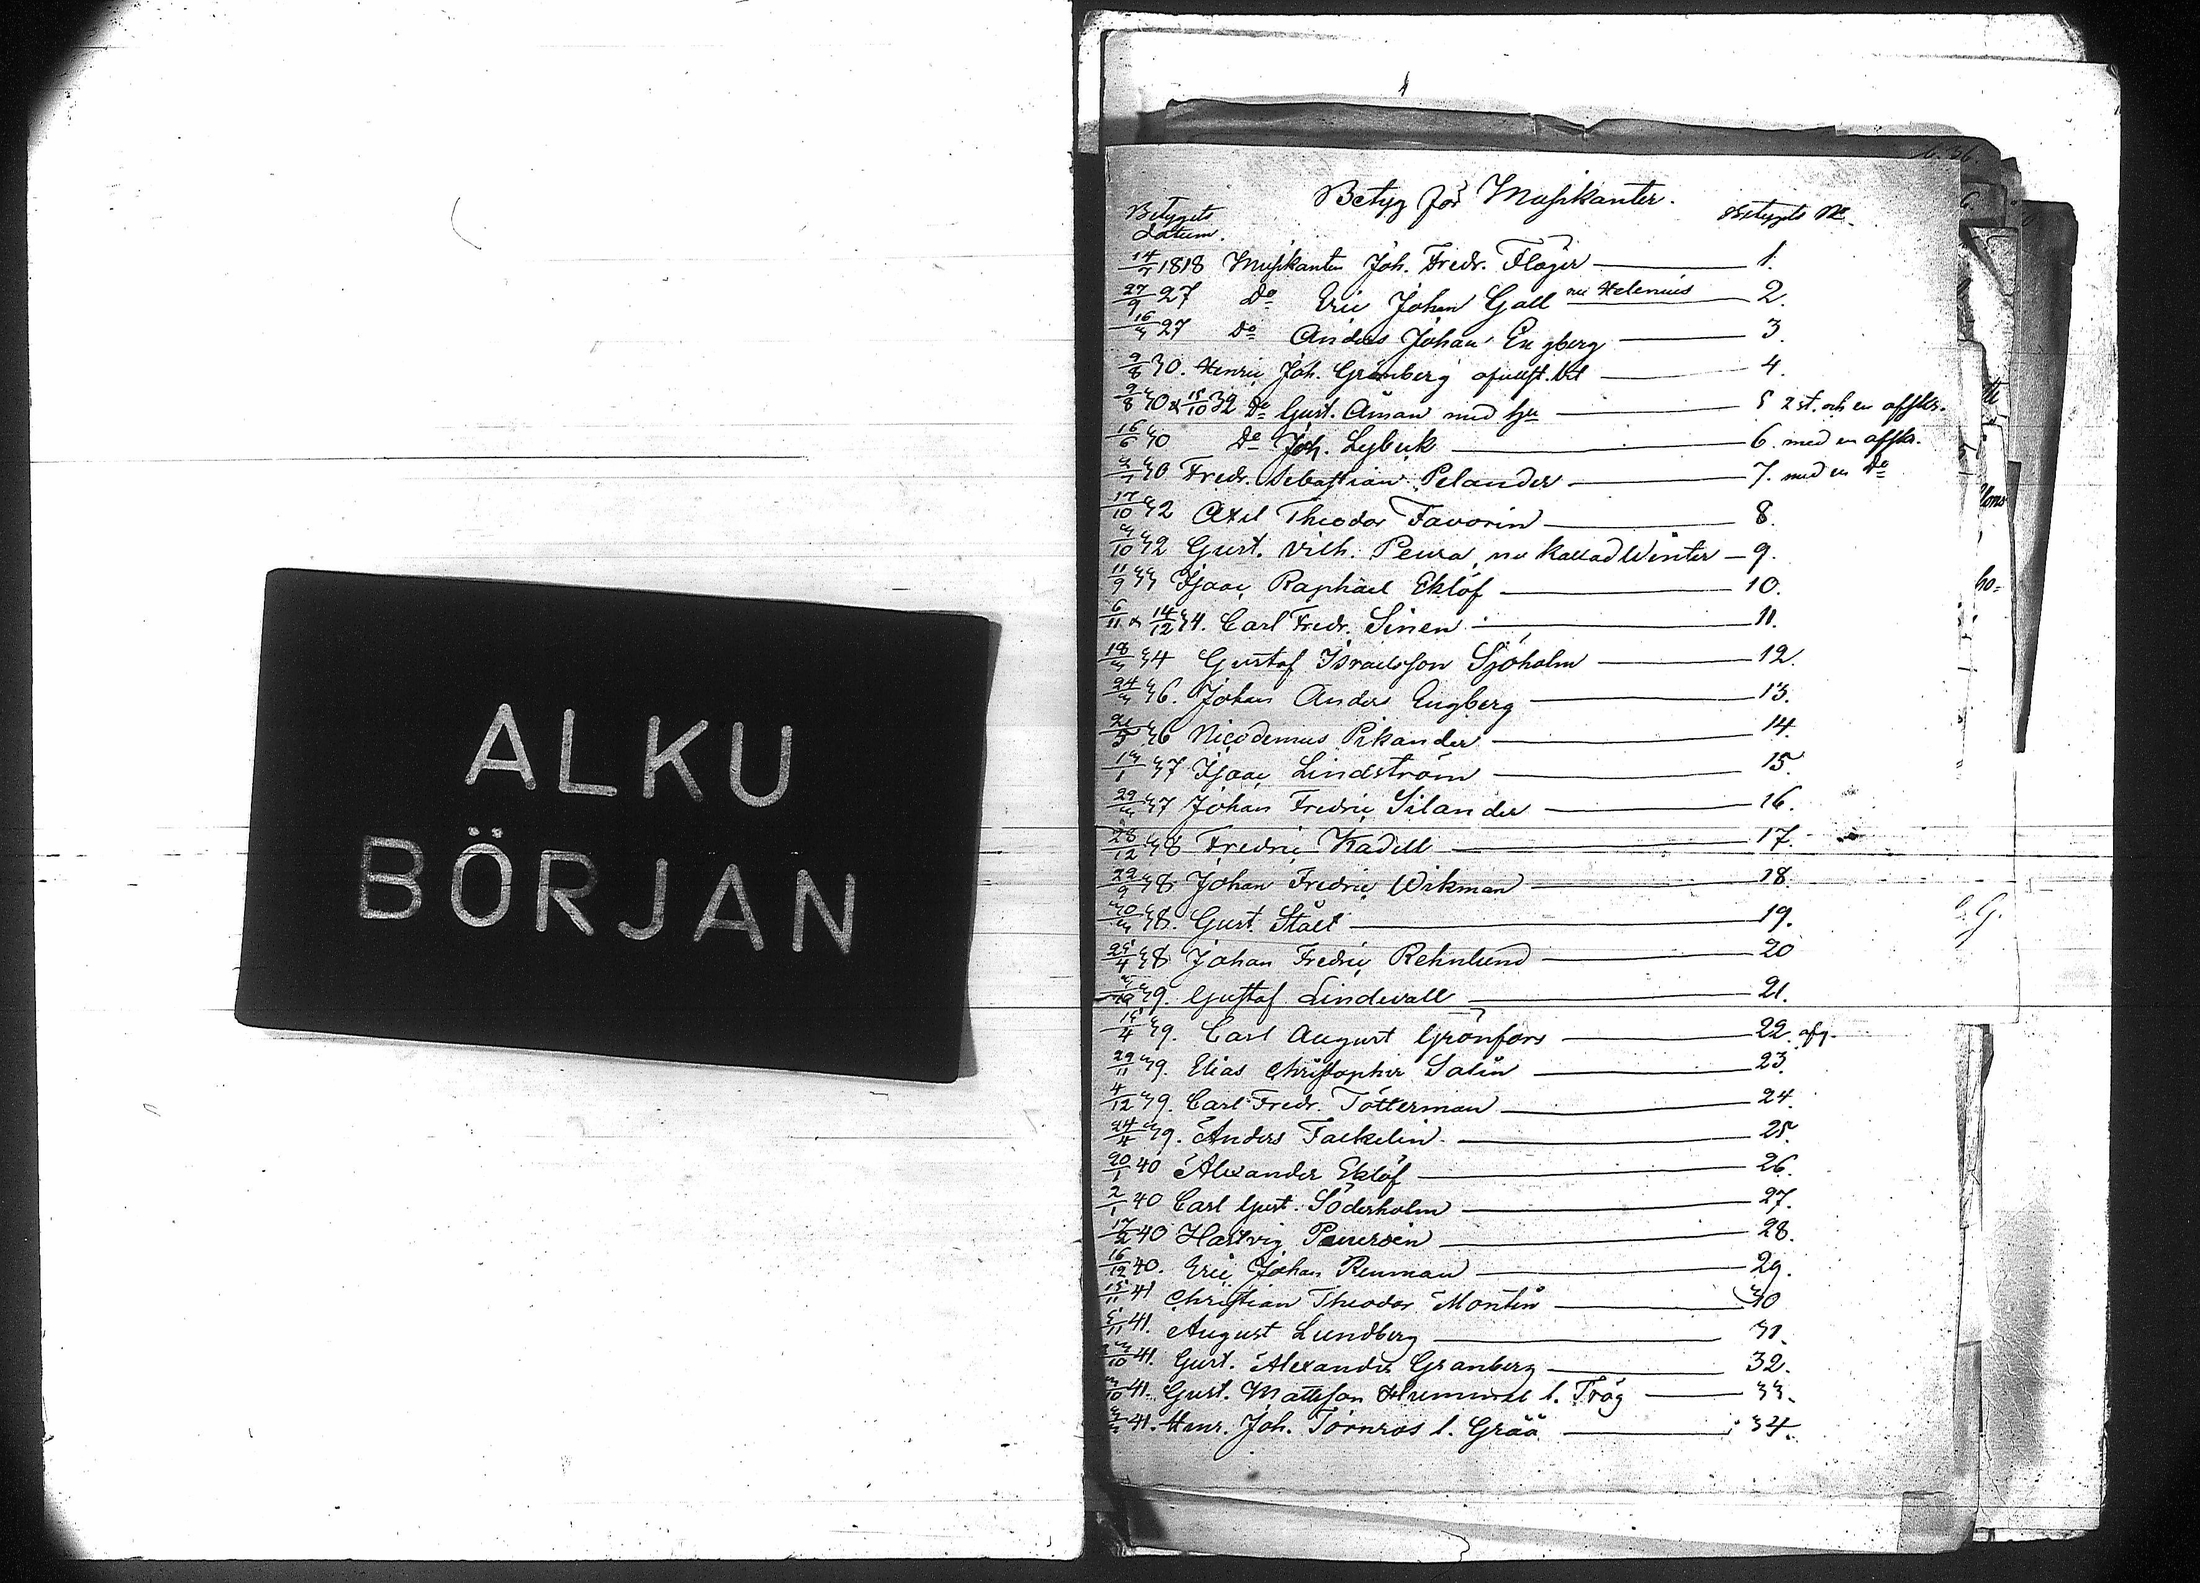 ALKU
BÖRJAN
Betyg för Musikanter.
Betygets datum. Betygets No
14/7 1818 Musikanten Joh. Fredr. Flöjer 1.
27/9 27 Do Eric Johan Gall nu Helenius 2.
16/3 27 Do Anders Johan Engberg 3.
9/8 30. Henric Joh. Grönberg 4.
9/8 30 & 15/10 32 Do Gust. Åman med 5 2 st. och en afskr.
16/6 30 Do Joh. Lybeck 6. med en afskr.
30 Fredr. Sebastian Pelander 7. med en Do
17/10 32 Axel Theodor Favorin 8.
3/10 32 Gust. Vilh. Peura, nu kallad Winter 9.
11/9 33 Isaac Raphael Eklöf 10.
6/11 & 14/12 34. Carl Fredr. Sinen 11.
18/3 34 Gustaf Israelsson Sjöholm 12.
24/3 36. Johan Anders Engberg 13.
36 Nicodemus Pikander 14.
13/1 37 Isaac Lindström 15.
29/3 37 Johan Fredric Silander 16.
28/12 38 Fredric Kadell 17.
22/9 38 Johan Fredric Wikman 18.
30/3 38. Gust. Stål 19.
25/4 38 Johan Fredric Rehnlund 20
39. Gustaf Lindevall 21.
15/4 39. Carl August Grönfors 22. afs.
29/11 39. Elias Christopher Salin 23.
4/12 39. Carl Fredr. Tötterman 24.
24/4 39. Anders Falkelin 25.
20/1 40 Alexander Eklöf 26.
2/1 40 Carl Gust. Söderholm 27.
17/2 40 Hartvig 28.
16/12 40. Eric Johan Renman 29.
15/11 41 Christian Theodor Montin 30
5/11 41. August Lundberg 31.
41. Gust. Alexander Granberg 32.
41. Gust. Mattsson Hummel l. Trög 33.
41. Henr. Joh. Törnros l. Gråå 34.